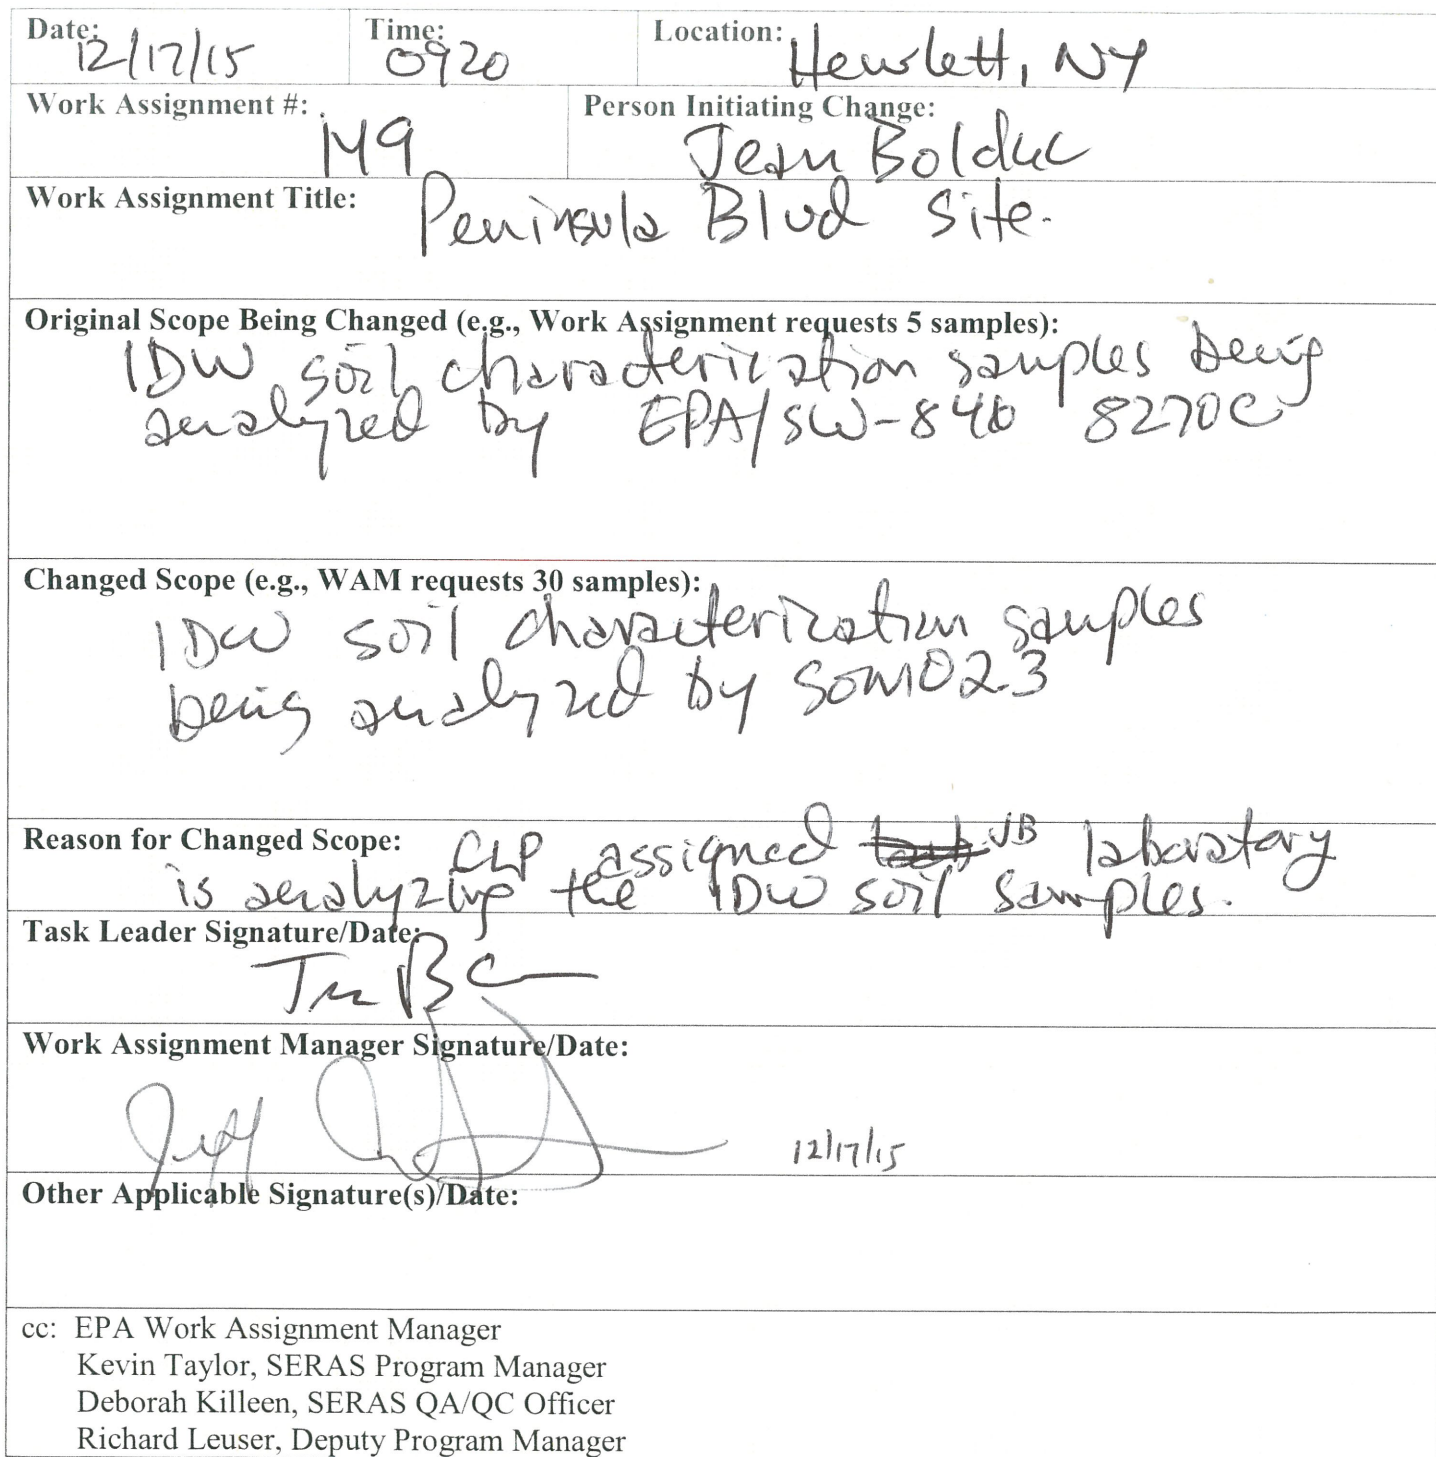 Date: 12/17/15 Time: 0920 Location: Hewlett, NY
Work Assignment #: 149 Person Initiating Change: Jean Bolduc
Work Assignment Title: Peninsula Blvd Site.
Original Scope Being Changed (e.g., Work Assignment requests 5 samples):
IDW soil characterization samples being
analyzed by EPA/SW-846 8270C
Changed Scope (e.g., WAM requests 30 samples):
IDW soil characterization samples
being analyzed by SOM02.3
Reason for Changed Scope: CLP assigned JB laboratory
is analyzing the IDW soil samples.
Task Leader Signature/Date:
Work Assignment Manager Signature/Date:
Jeff 12/17/15
Other Applicable Signature(s)/Date:
cc: EPA Work Assignment Manager
Kevin Taylor, SERAS Program Manager
Deborah Killeen, SERAS QA/QC Officer
Richard Leuser, Deputy Program Manager